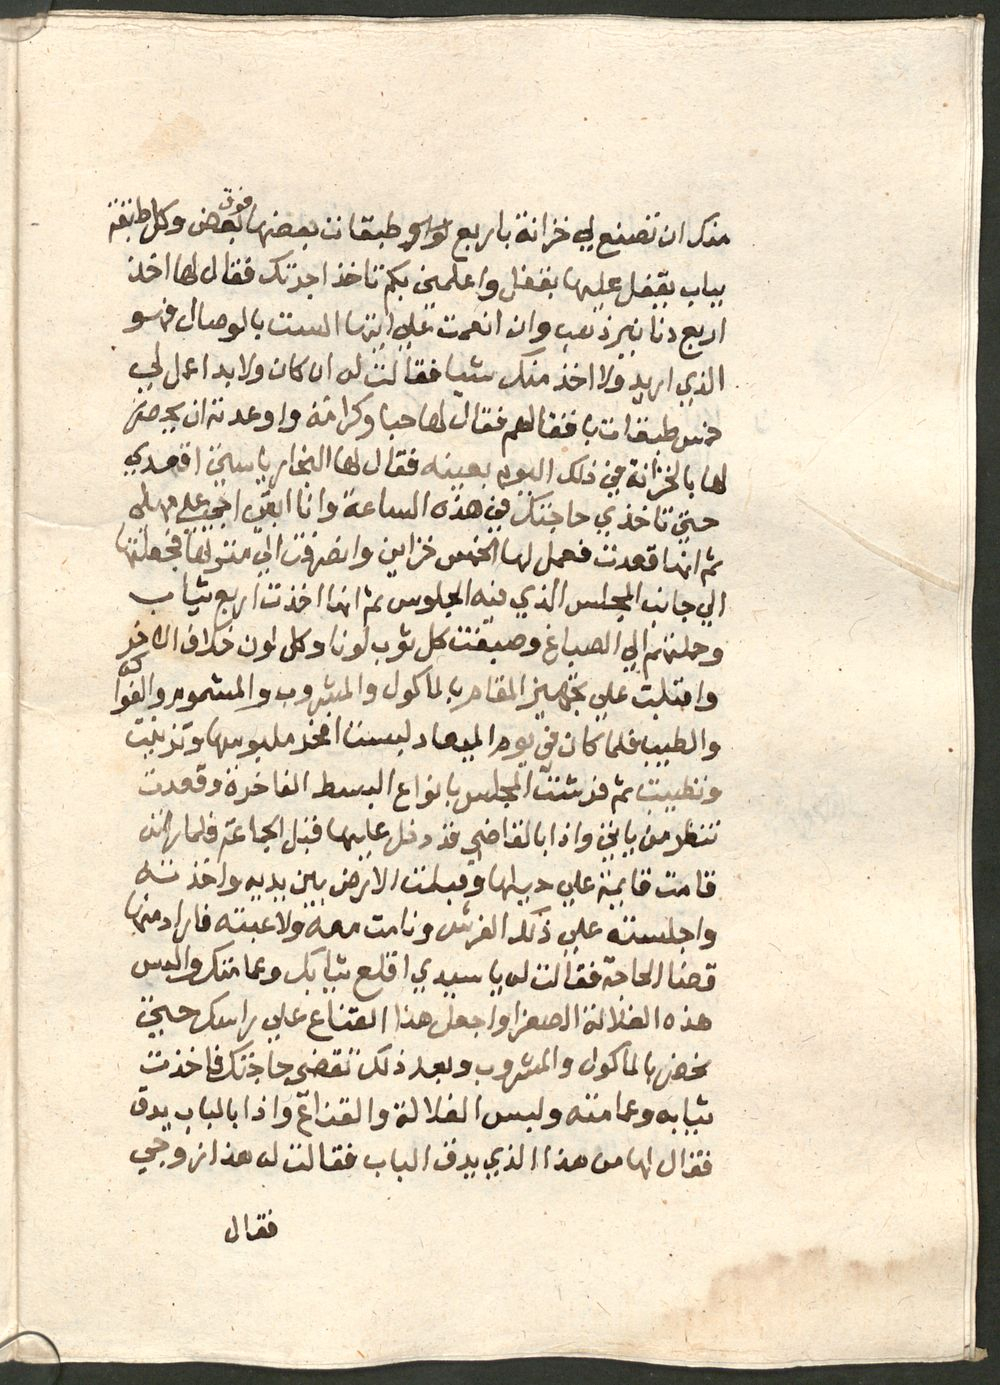 منك ان تصنع لي خزانة باربع طبقات بعضها فوق بعض وكل طبقة
بباب يقفل عليها بقفل واعلمني بكم تاخذ اجرتك فقال لها اخذ
اربع دنانير ذهب وان انعمت علي ايتها الست بالوصال فهو
الذي اريد ولا اخذ منك شيا فقالت له ان كان ولا بد اعمل لي
خمس طبقات باقفالهم فقال لها حبا وكرامة واوعدته ان يحضر
لها بالخزانة في ذلك اليوم بعينه فقال لها النجار ياستي اقعدي
حتي تاخذي حاجتك في هذه الساعة وانا ابقي اجي علي مهلي
ثم انها قعدت فعمل لها الخمس خزاين وانصرفت الي منزلها فجعلتها
الي جانب المجلس الذي فيه الجلوس ثم انها اخذت اربع ثياب
وحملتهم الي الصباغ وصبغت كل ثوب لونا وكل لون خلاف الاخر
واقبلت علي تجهيز المقام بالماكول والمشروب والمشموم والفواكه
والطيب فلما كان في يوم الميعاد لبست افخر ملبوسها وتزينت
وتطيبت ثم فرشت المجلس بانواع البسط الفاخرة وقعدت
تنظر من ياتي واذا بالقاضي قد دخل عليها قبل الجماعة فلما راته
قامت قايمة علي حيلها وقبلت الارض بين يديه واخذته
واجلسته علي ذلك الفرش ونامت معه ولاعبته فاراد منها
قضا الحاجة فقالت له يا سيدي اقلع ثيابك وعمامتك والبس
هذه الغلالة الصفرا واجعل هذا القناع علي راسك حتي
نحضر بالماكول والمشروب وبعد ذلك تقضي حاجتك فاخذت
ثيابه وعمامته ولبس الغلالة والقناع واذا بالباب يدق
فقال لها من هذا الذي يدق الباب فقالت له هذا زوجي
فقال